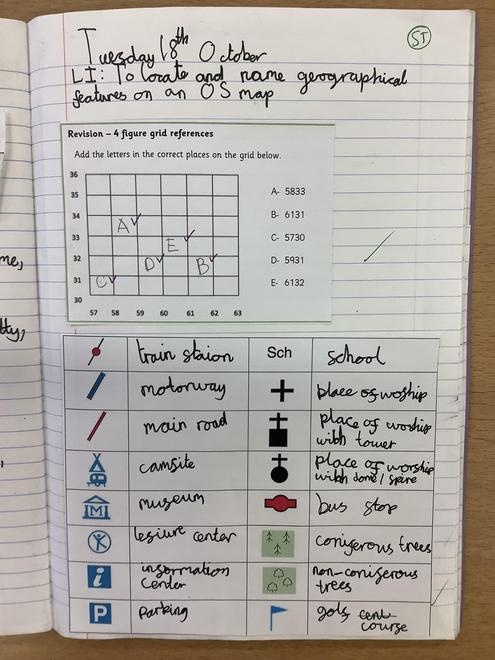 ST
Tuesday 18th October
LI: To locate and name geographical
features on an OS map
Revision – 4 figure grid references
Add the letters in the correct places on the grid below.
36
35
34
33
32
31
30
57 58 59 60 61 62 63
A
E
D
B
C
A- 5833
B- 6131
C- 5730
D- 5931
E- 6132
me,
tty,
train staion Sch school
motorway place of worship
main road place of worship
with tower
camsite place of worship
with dome/spire
M museum bus stop
lesiure center coniferous trees
i information
center non-coniferous
trees
P Parking golf cent
course